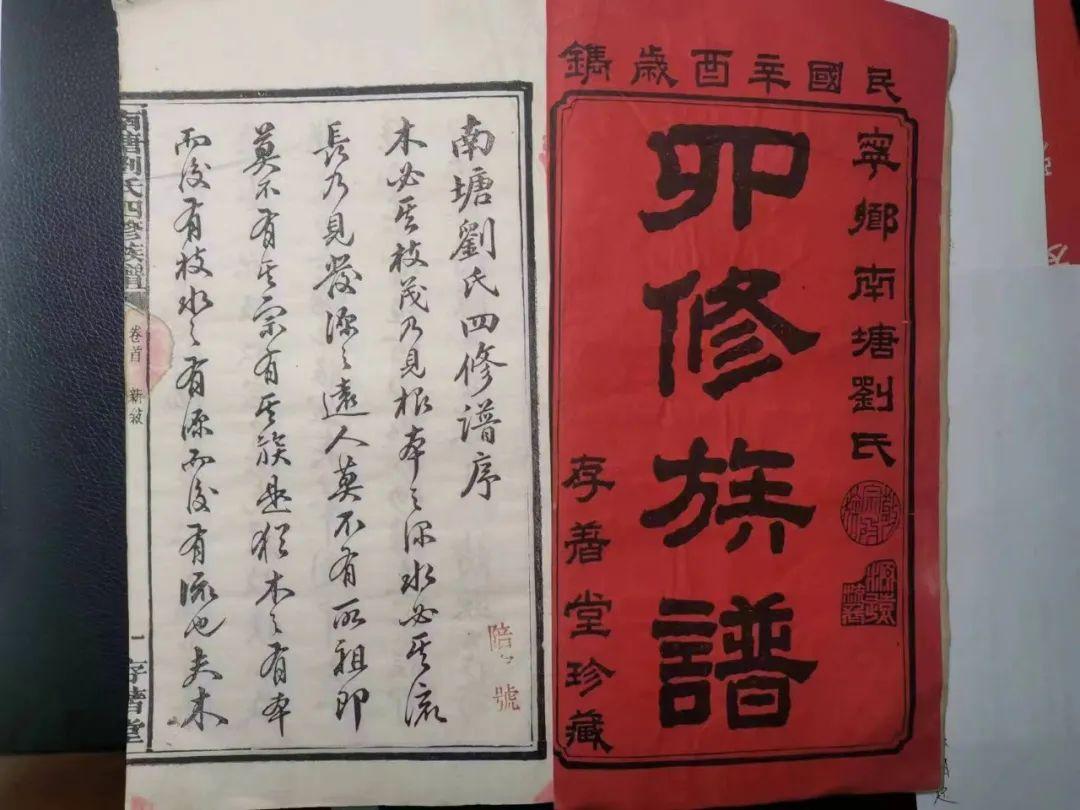 民國辛酉歲鐫
寧鄉南塘劉氏
四修族譜
存善堂珍藏
南塘劉氏四修譜序
木必其枝茂乃見根本之深水必其流
長乃見發源之遠人莫不有所祖即
莫不有其宗有其族是猶木之有本
而後有枝水之有源而後有流也夫木
陪 號
南塘劉氏四修族譜
卷首 新敘
一
存善堂